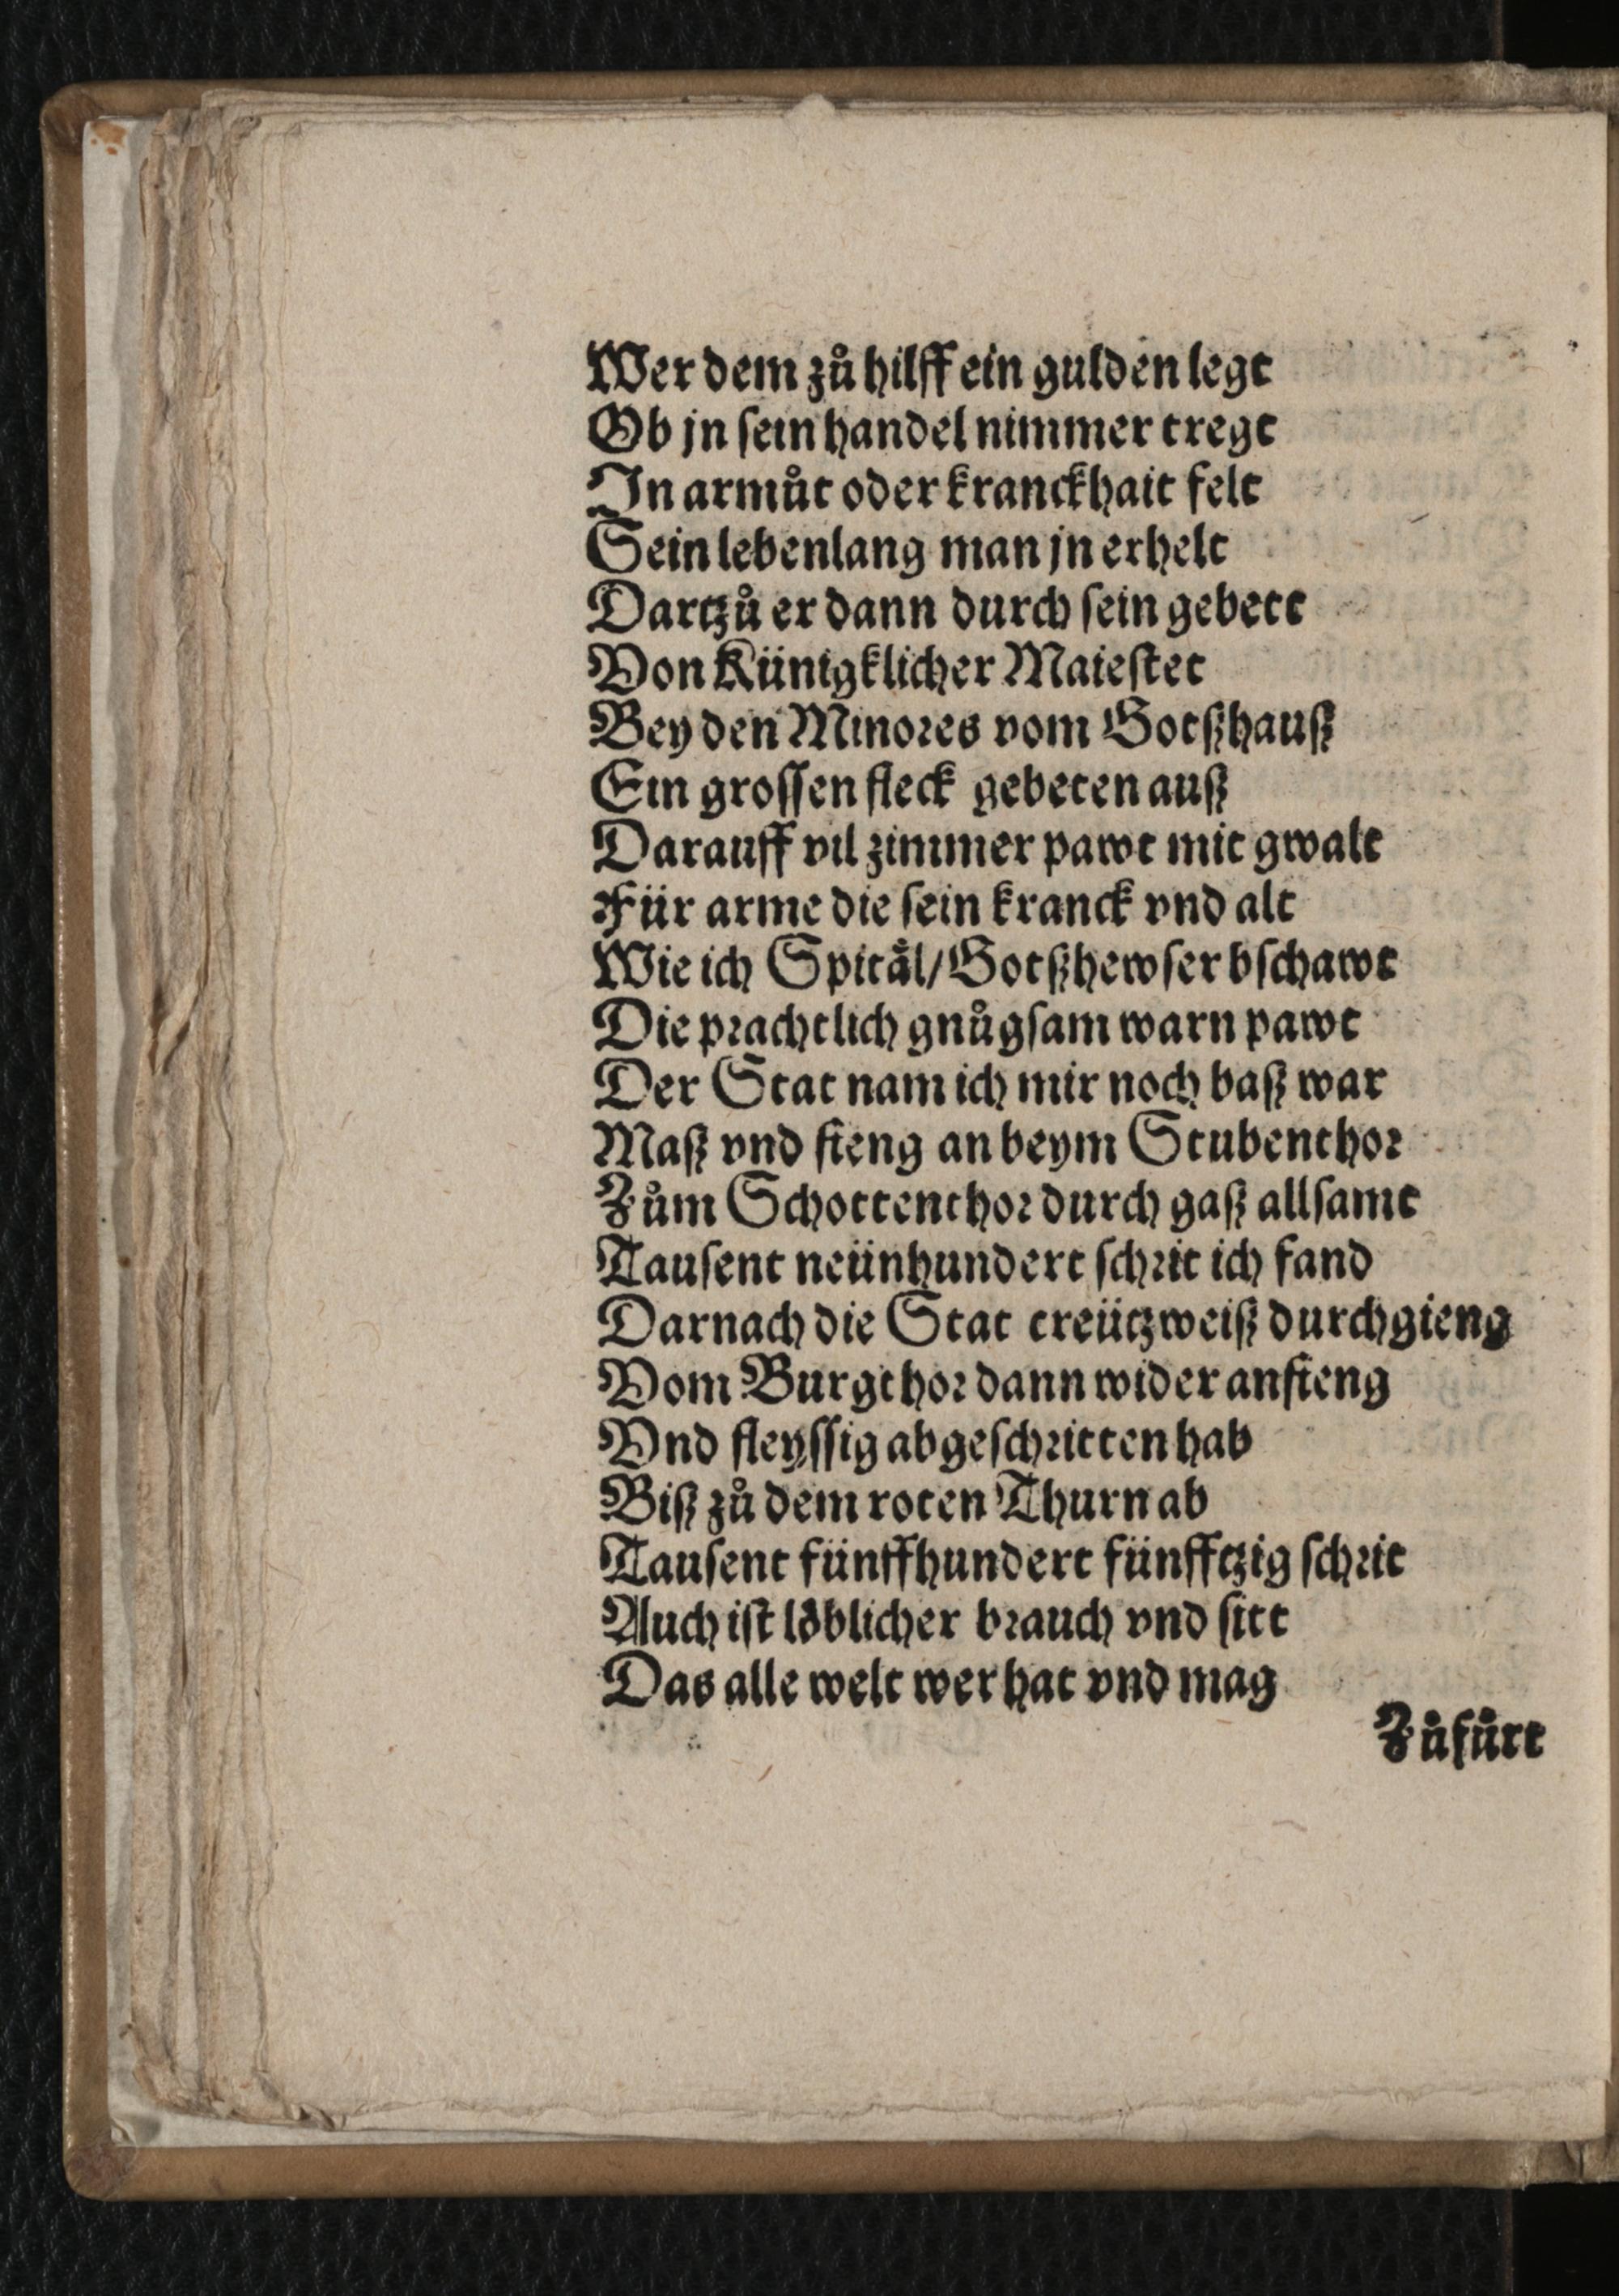 Wer dem zů hilff ein gulden legt
Ob jn ſein handel nimmer tregt
In armůt oder kranckhait felt
Sein lebenlang man jn erhelt
Dartzů er dann durch ſein gebett
Von Künigklicher Maieſtet
Bey den Minores vom Gotßhauß
Ein groſſen fleck gebeten auß
Darauff vil zimmer pawt mit gwalt
Für arme die ſein kranck vnd alt
Wie ich Spitål/Gotßhewſer bſchawt
Die prachtlich gnůgſam warn pawt
Der Stat nam ich mir noch baß war
Maß vnd fieng an beym Stubenthor
Zům Schottenthor durch gaß allſamt
Tauſent neünhundert ſchrit ich fand
Darnach die Stat creützweiß durchgieng
Vom Burgthor dann wider anfieng
Vnd fleyſſig abgeſchritten hab
Biß zů dem roten Thurn ab
Tauſent fünffhundert fünfftzig ſchrit
Auch iſt löblicher brauch vnd ſitt
Das alle welt wer hat vnd mag
Zůfůrt